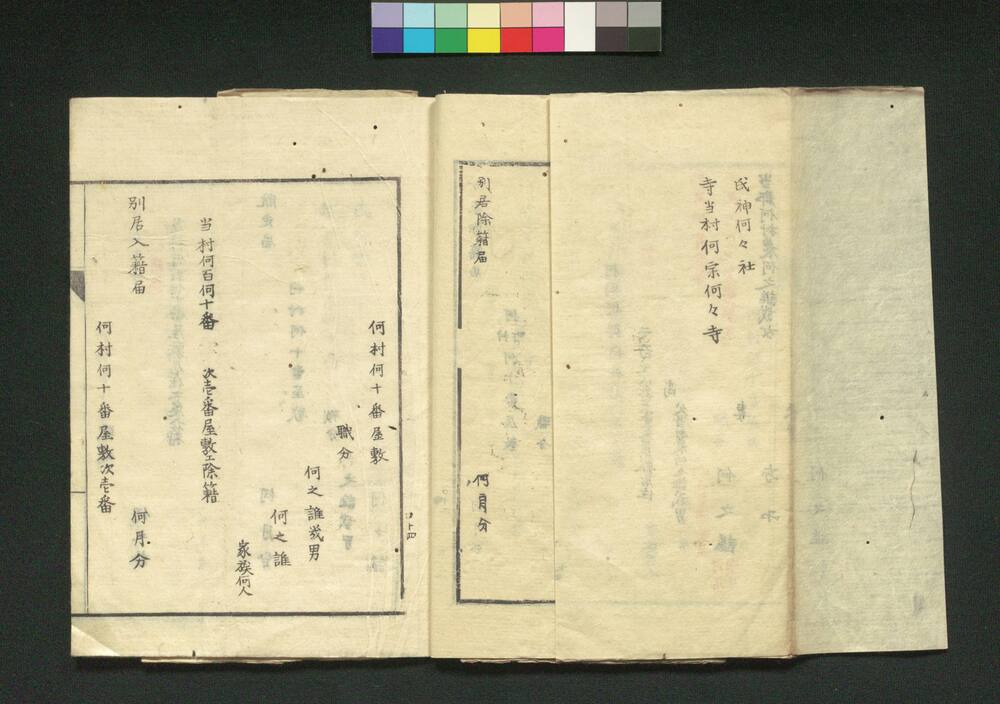 氏神何々社
寺当村何宗何々寺
別居除籍届
何月分
四十四
何村何十番屋敷
職分
何之誰幾男
何之誰
家族何人
当村何百何十番
次壱番屋敷エ除籍
別居入籍届
何月分
何村何十番屋敷次壱番